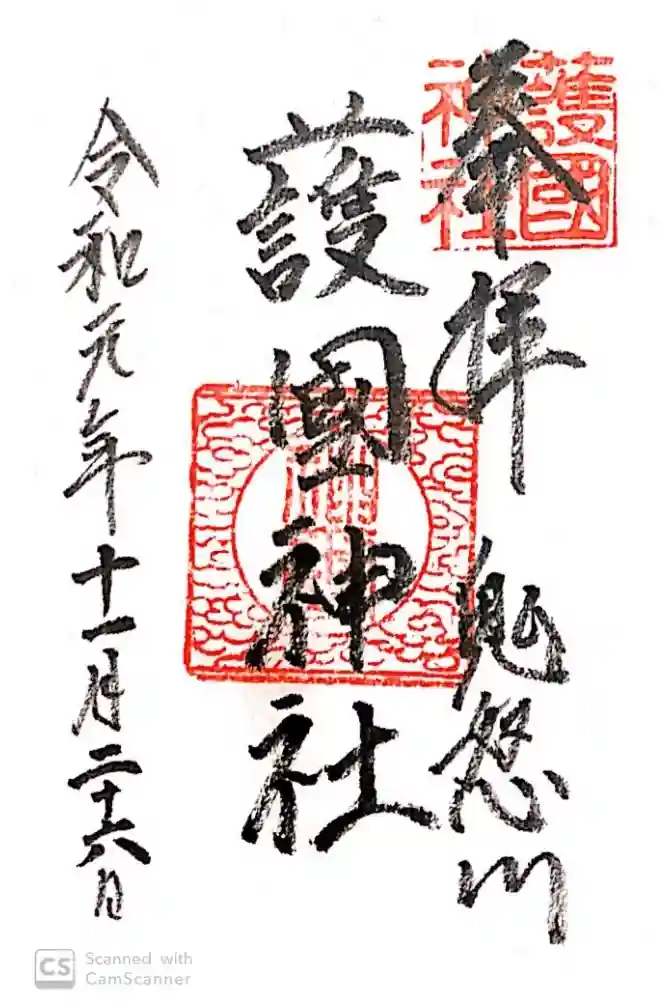 奉拝 鬼怒川
護國神社
令和元年十一月二十六日
護國
神社
CS Scanned with
CamScanner